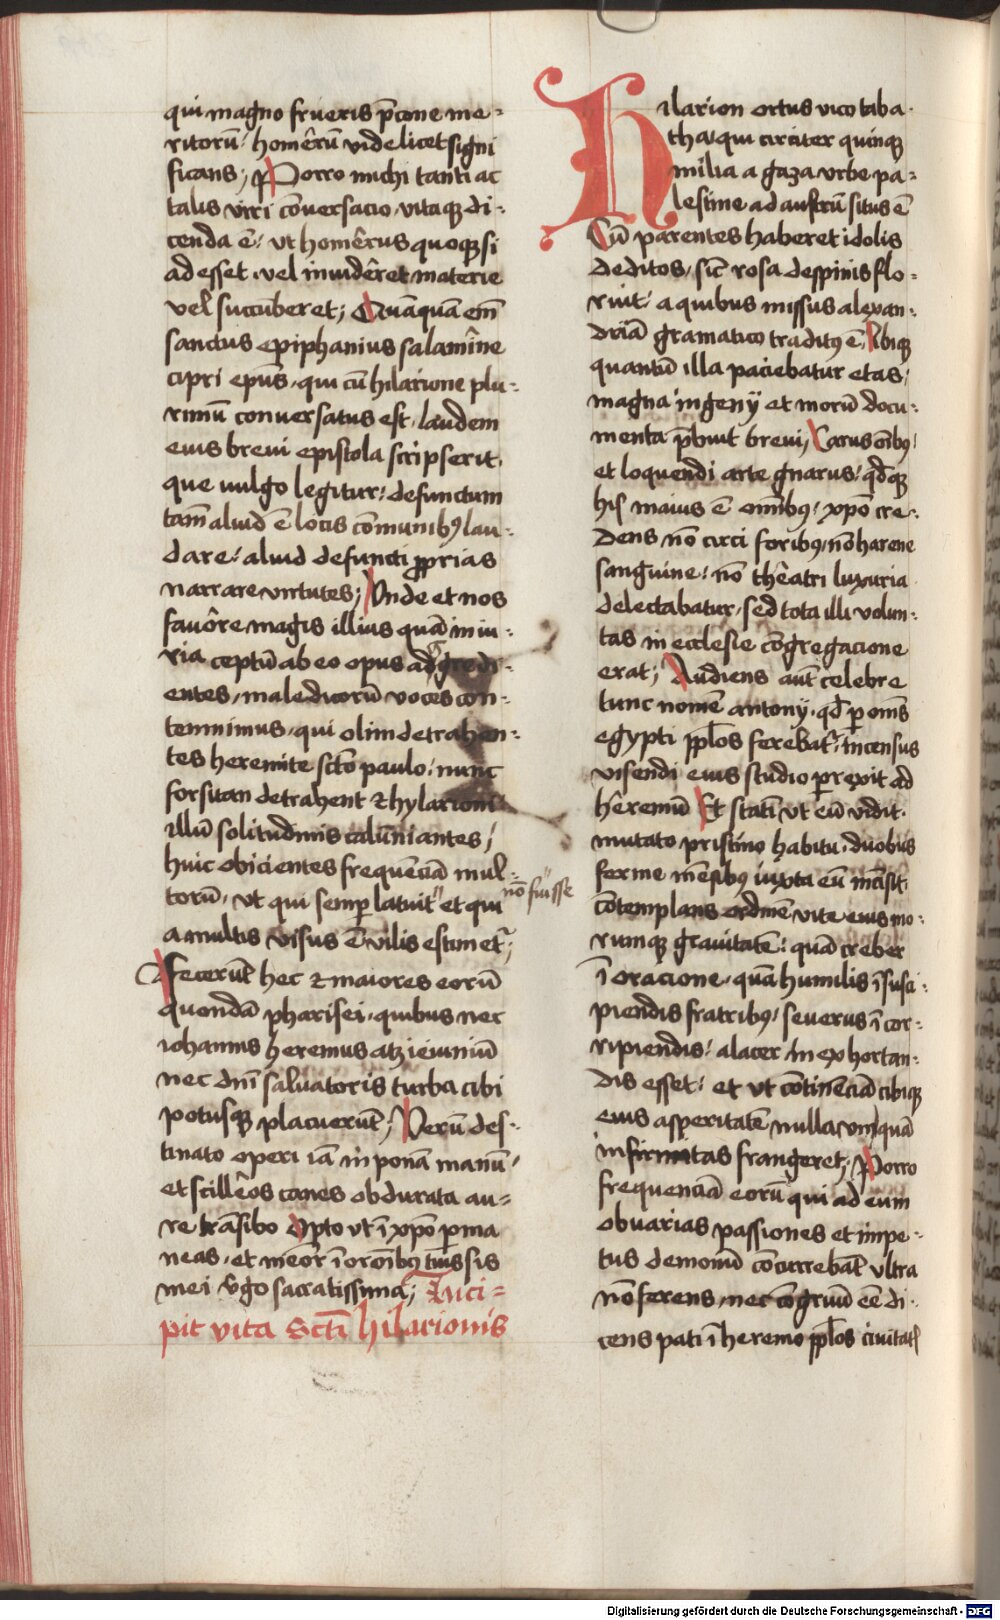 qui magno frueris p̃cone me-
ritorū· homêrū videlicet signi
ficans; Porro michi tanti ac
talis viri cōuersacio vitaqꝫ di-
cenda ē· vt homêrus quoqꝫ si
adesset· vel inuidêret materie
vel succūberet; Quāquā em̄
sanctus epiphanius salamîne
cipri ep̄us· qui cū hilarione plu-
rimū conuersatus est· laudem
eius breui epistola scripserit·
que uulgo legitur· defunctum
tam̄ aliud ē locis cōmunibꝰ lau-
dare· aliud defuncti ꝓprias
narrare virtutes; Vnde et nos
fauôre magis illius quā in iu-
ria ceptū ab eo opus adgredi-
entes· maledicorū voces con-
temnimus· qui olim detrahen-
tes heremite sc̄to paulo· nunc
forsitan detrahent ⁊ hylarioni
illū solitudinis calūniantes;
huic obicientes frequēciā mul-
torū· vt qui semꝑ latuit et qui
nō fuisse
a multis visus ē vilis estimetᷣ;
Fecerūt hec ⁊ maiores eorū
quondā pharisei· quibus nec
iohannis heremus atqꝫ ieiuniū
nec dn̄i saluatoris turba cibi
potusqꝫ placuerūt; Verū des-
tinato operi iā inponā manū·
et scillêos canes obdurata au-
re trāsibo Opto vt ī xp̄o ꝑma
neas· et memor ī orōnibꝰ tuis sis
mei v̄go sacratissima; Inci-
pit vita Sc̄ti hilarionis
Hilarion ortus vico taba·
tha· qui circiter quinqꝫ
milia a gaza vrbe pa-
lestine ad austrū situs ē
Cū parentes haberet idolis
deditos· sic̄ rosa de spinis flo-
ruit· a quibus missus alexan-
driā gramatico traditꝰ ē Ibiqꝫ
quantū illa paciebatur etas·
magna ingenij et morū docu-
menta p̄buit breui; Carus oībꝰ
et loquendi arte gnarus· qd̄qꝫ
his maius ē om̄ibꝰ· xp̄o cre-
dens nō circi foribꝰ· nō harene
sanguine· nō theâtri luxuria
delectabatur· sed tota illi volun-
tas in ecclesie cōgregacione
erat; Audiens aūt celebre
tunc nomē antonij· qd̄ ꝑ om̄s
egypti pp̄los ferebatᷣ· incensus
visendi eius studio ꝑrexit ad
hêremū Et statī vt eū vidit·
mutato pristino habitu· duobus
ferme mēsibꝰ iuxta eū māsit·
cōtemplans ordinē vite eius mo-
rumqꝫ grauitatē· quā creber
ī oracione· quā humilis ī susci-
piendis fratribꝰ· seuerus ī cor-
ripiendis· alacer in exhortan-
dis esset· et vt cōtinēciā cibiqꝫ
eius asperitatē nulla vmquā
infirmitas frangeret; Porro
frequenciā eorū qui ad eum
ob uarias passiones et impe-
tus demonū cōcurrebāt vltra
nō ferens· nec cōgruū eē di-
cens pati ī heremo pp̄los ciuitatꝭ